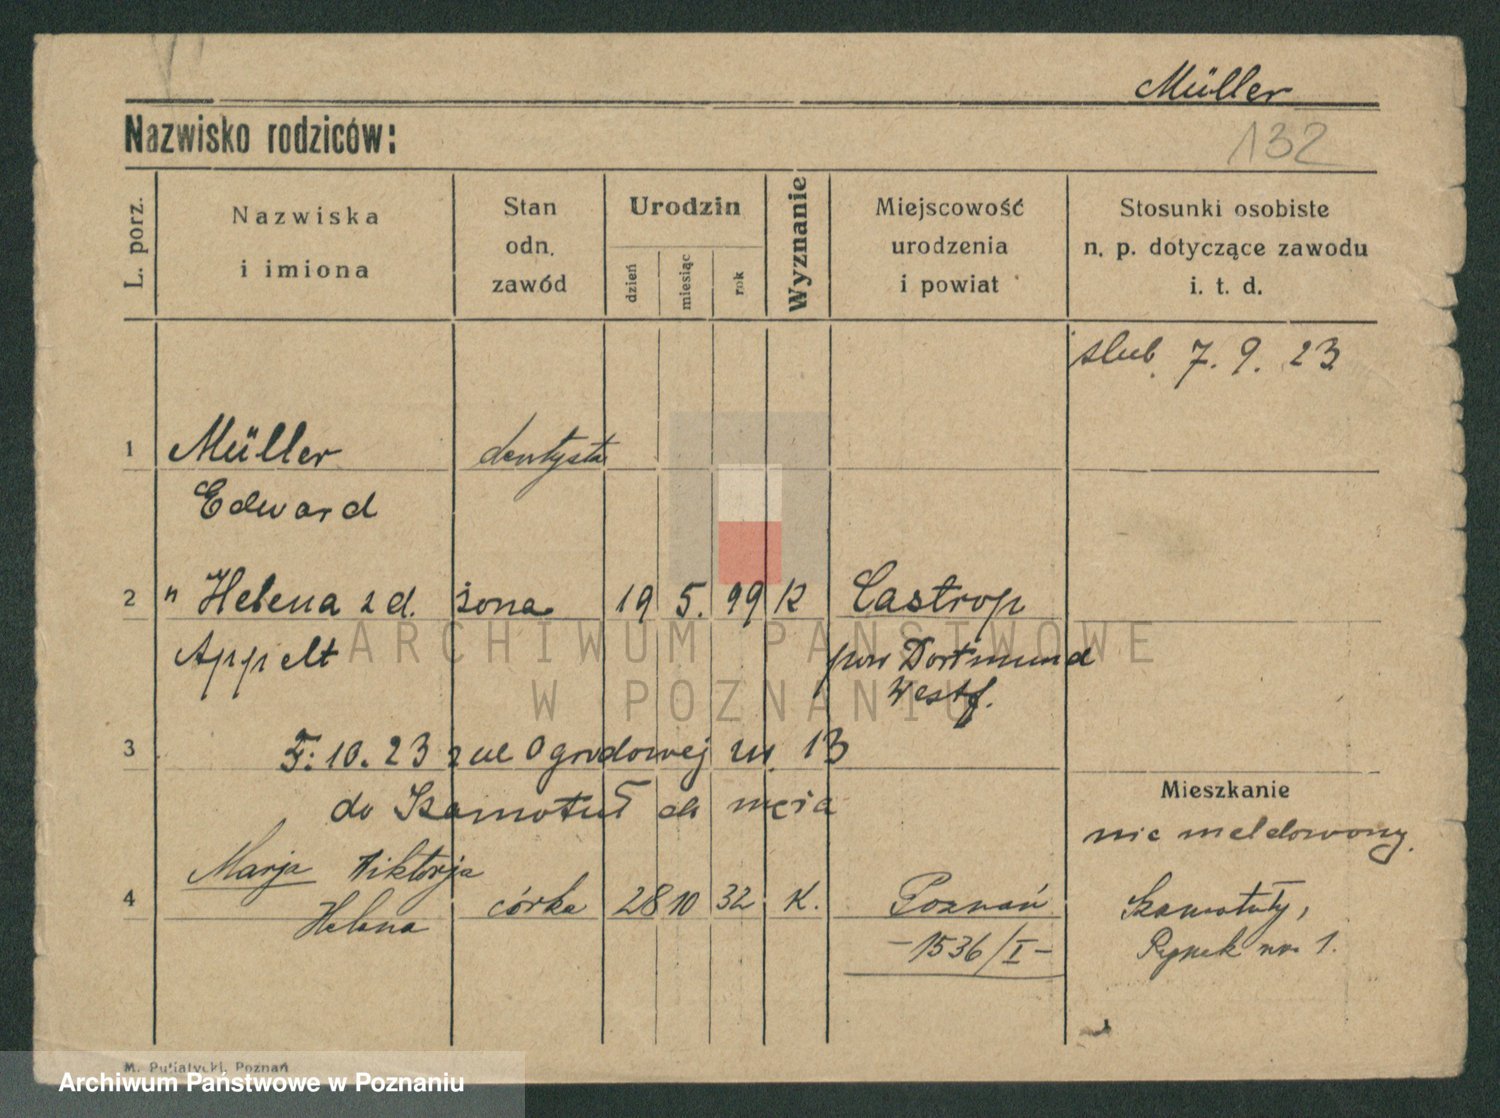 Müller
Nazwisko rodziców:
132
L. porz.
Nazwiska
i imiona
Stan
odn.
zawód
Urodzin
dzień
miesiąc
rok
Wyznanie
Miejscowość
urodzenia
i powiat
Stosunki osobiste
n. p. dotyczące zawodu
i. t. d.
ślub. 7. 9. 23
1 Müller dentysta
Edward
2 " Helena z d. żona 19 5. 99 K Castrop
Appelt pow Dortmund
Westf.
3 10. 23 z ul Ogrodowej nr. 13
do Szamotuł do męża
Mieszkanie
nie meldowony.
Marja Wiktorja
4 Helena córka 28 10 32 K. Poznań
-1536/I-
Szamotuły,
Rynek nr. 1.
ARCHIWUM PAŃSTWOWE
W POZNANIU
M. Putiatycki, Poznań
Archiwum Państwowe w Poznaniu